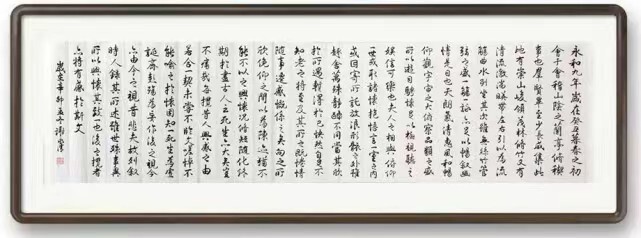 永和九年歲在癸丑暮春之初
會于會稽山陰之蘭亭修稧
事也羣賢畢至少長咸集此
地有崇山峻領茂林修竹又有
清流激湍暎帶左右引以為流
觴曲水列坐其次雖無絲竹管
弦之盛一觴一詠亦足以暢敘幽
情是日也天朗氣清惠風和暢
仰觀宇宙之大俯察品類之盛
所以遊目騁懷足以極視聽之
娛信可樂也夫人之相與俯仰
一世或取諸懷抱悟言一室之內
或因寄所託放浪形骸之外雖
趣舍萬殊靜躁不同當其欣
於所遇暫得於己快然自足不
知老之將至及其所之既惓情
隨事遷感慨係之矣向之所
欣俛仰之間以為陳迹猶不
能不以之興懷況修短隨化終
期於盡古人云死生亦大矣豈
不痛哉每攬昔人興感之由
若合一契未嘗不臨文嗟悼不
能喻之於懷固知一死生為虛
誕齊彭殤為妄作後之視今
亦由今之視昔悲夫故列敘
時人錄其所述雖世殊事異
所以興懷其致一也後之攬者
亦將有感於斯文